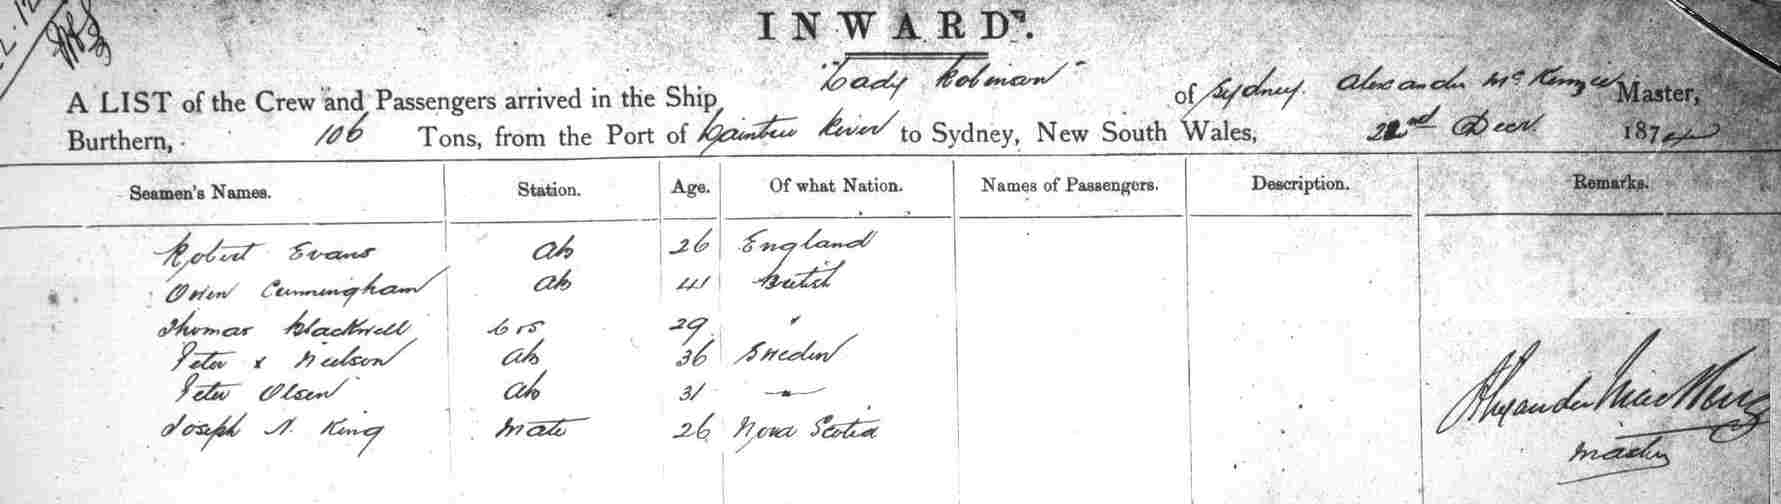 INWARD.
A LIST of the Crew and Passengers arrived in the Ship "Lady Robinson" of Sydney. Alexander McKenzie Master,
Burthern, 106 Tons, from the Port of River to Sydney, New South Wales, 22nd Decr 1874
Seamen's Names. Station. Age. Of what Nation. Names of Passengers. Description. Remarks.
Robert Evans ab 26 England
Owen Cunningham ab 41 British
Thomas Blackwell 29 "
Peter x Neilson ab 36 Sweden
Peter Olsen ab 31 —"—
Joseph N. King Mate 26 Nova Scotia
Alexander MacKenzie
Master